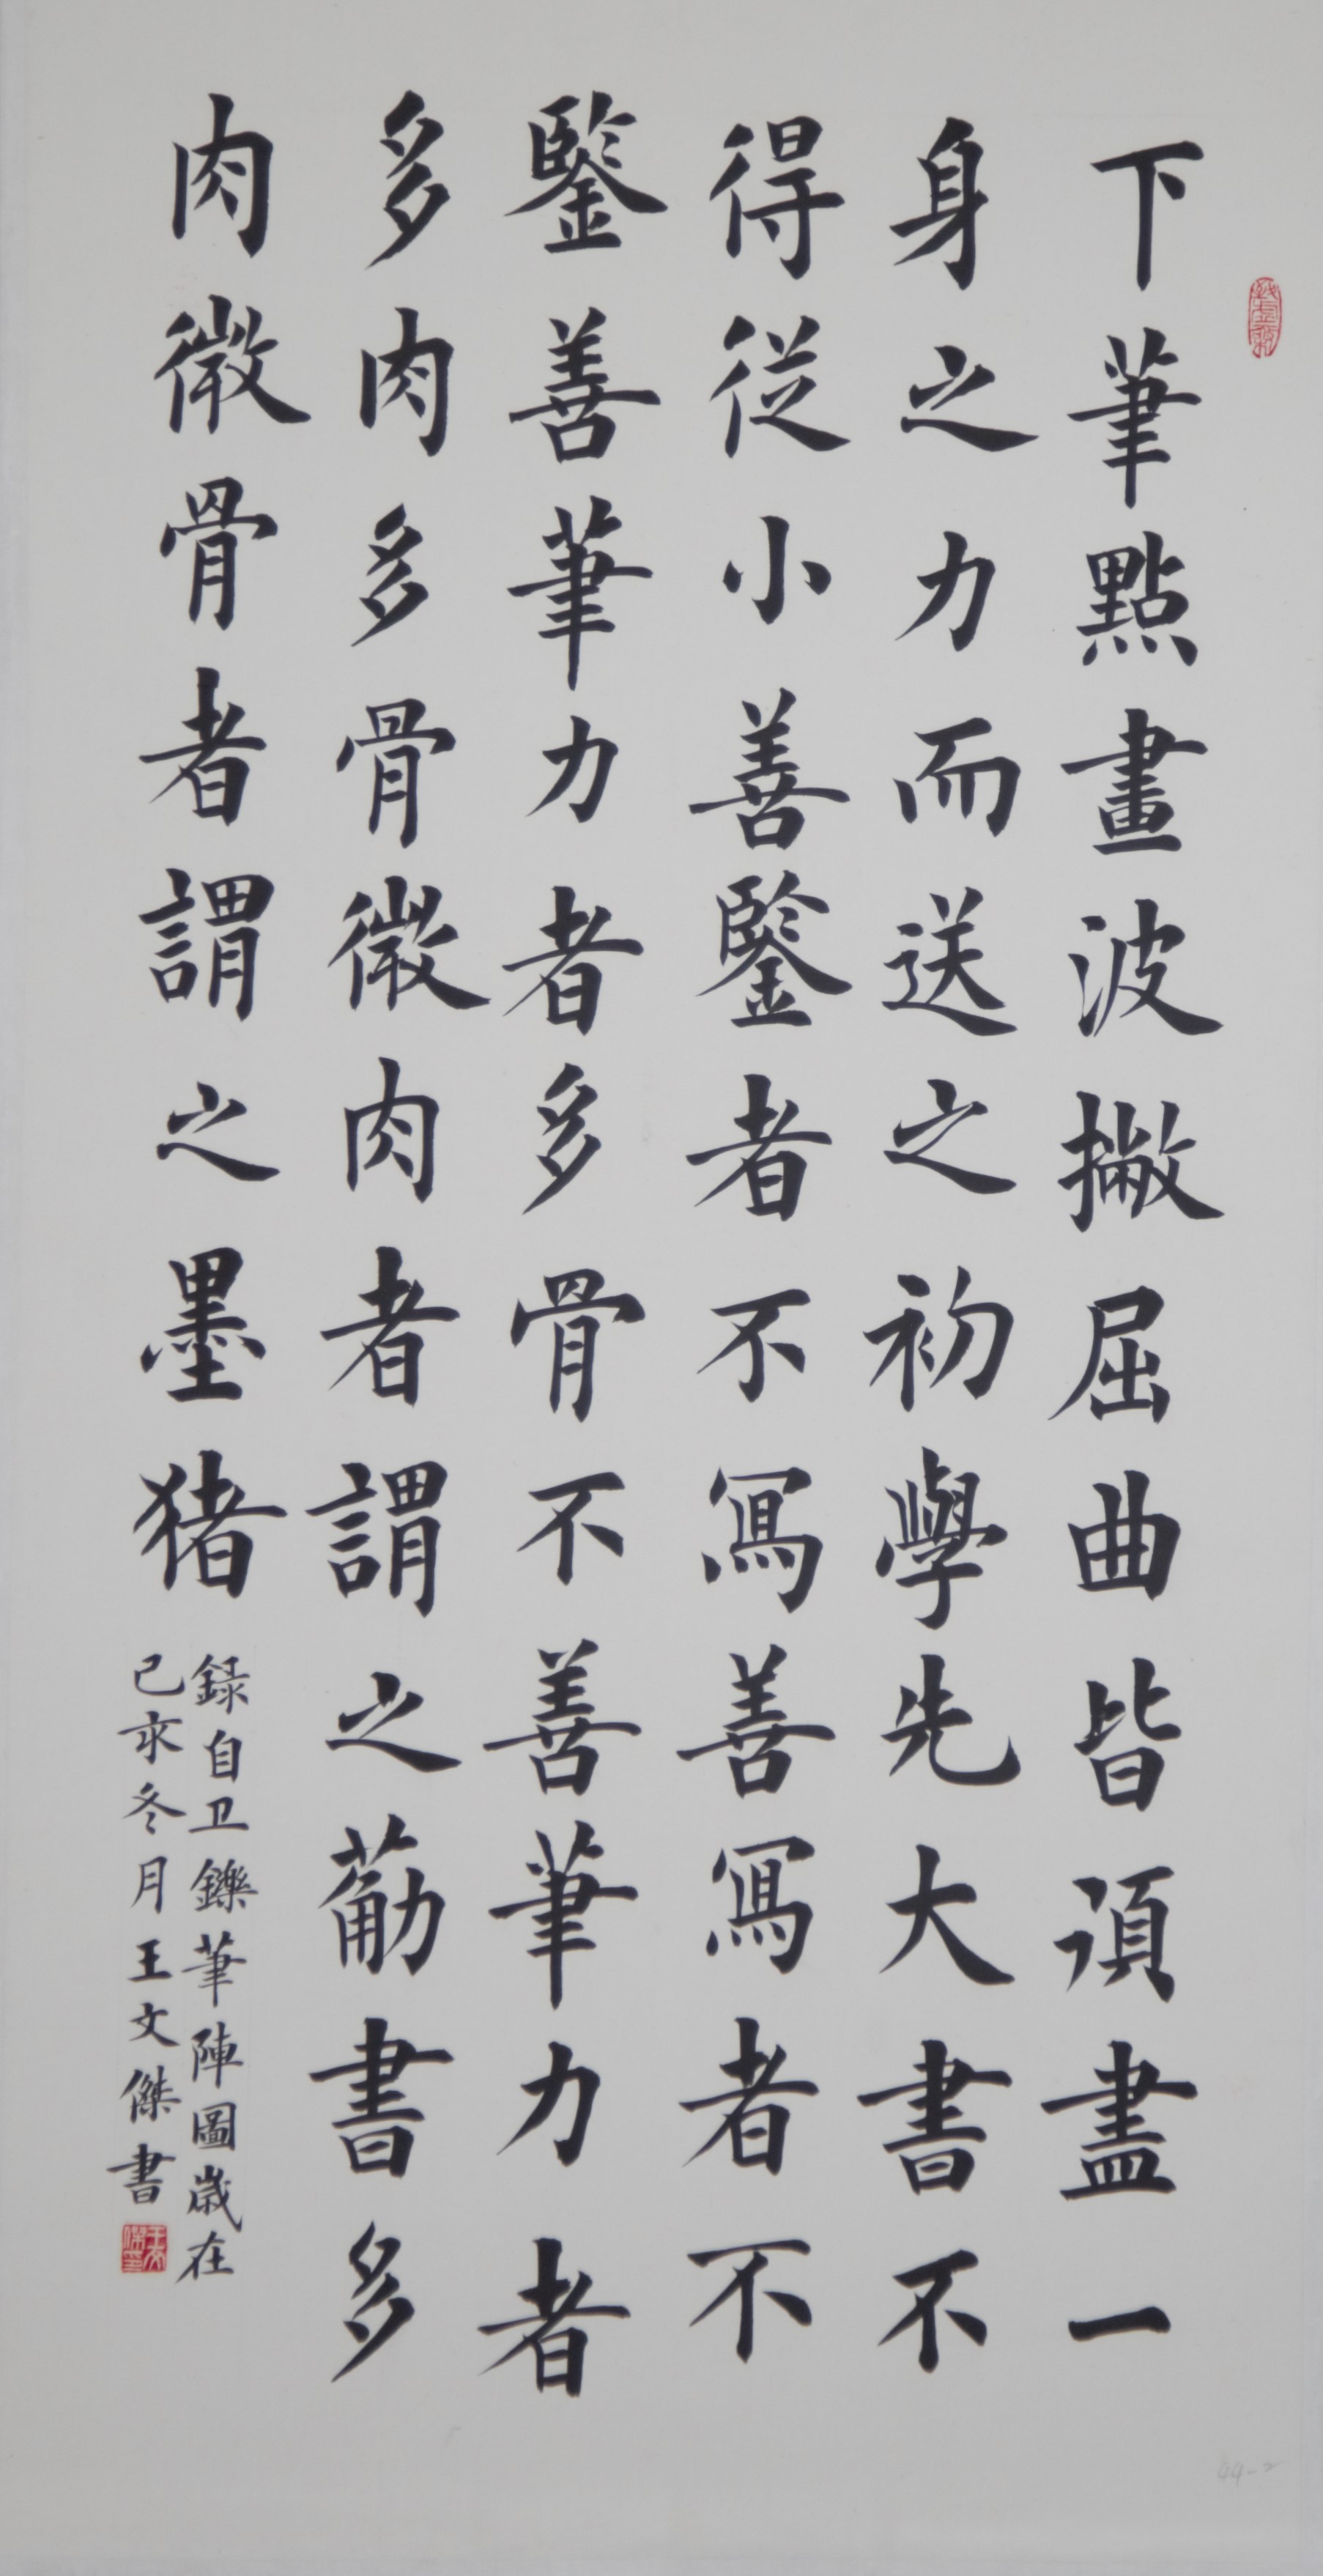 下筆點畫波撇屈曲皆須盡一
身之力而送之初學先大書不
得従小善鑒者不寫善寫者不
鑒善筆力者多骨不善筆力者
多肉多骨微肉者謂之筋書多
肉微骨者謂之墨猪
録自卫鑠筆陣圖歲在
己亥冬月王文傑書
44-2